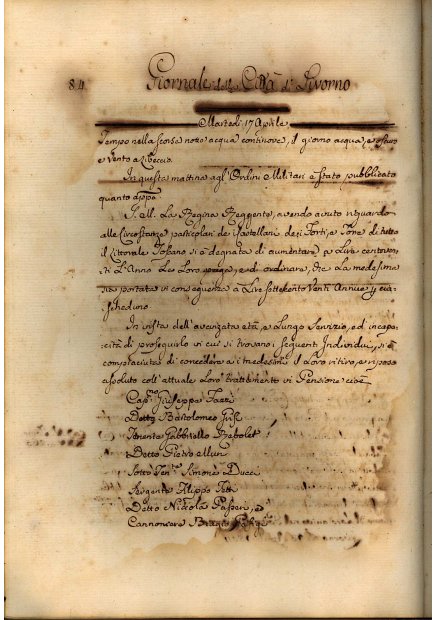 84 Giornale della Città di Livorno
Martedì 17 Aprile
Tempo nella scorsa notte acqua continova, il giorno acqua, e oscuro
e vento a Libeccio
In questa mattina agl'Ordini Militari è stato pubblicato
quanto app.o
S. M. La Regina Reggente, avendo avuto riguardo
alle Circostanze particolari dei Castellani dei Forti, e Torre di tutto
il Littorale Toscano si è degnata di aumentare a Lire
L'Anno Le Loro paghe, ed ordinare, che La medesima
portata in conseguenza a Lire settecento Venti Annue
In vista dell'avanzata età, e Lungo Servizio, ed incapa-
cità di proseguirlo in cui si trovano i seguenti Individui, si è
compiaciuta di concedere ai medesimi il Loro ritiro, e riposo
assoluto coll'attuale Loro trattamento di Pensione cioè
Cap. Giuseppe
Detto Bartolomeo
Tenente
Detto Pietro
Sotto Ten.te Simone Ducci
Sergente Filippo
Detto Niccola Passeri, e
Cannoniere Biagio